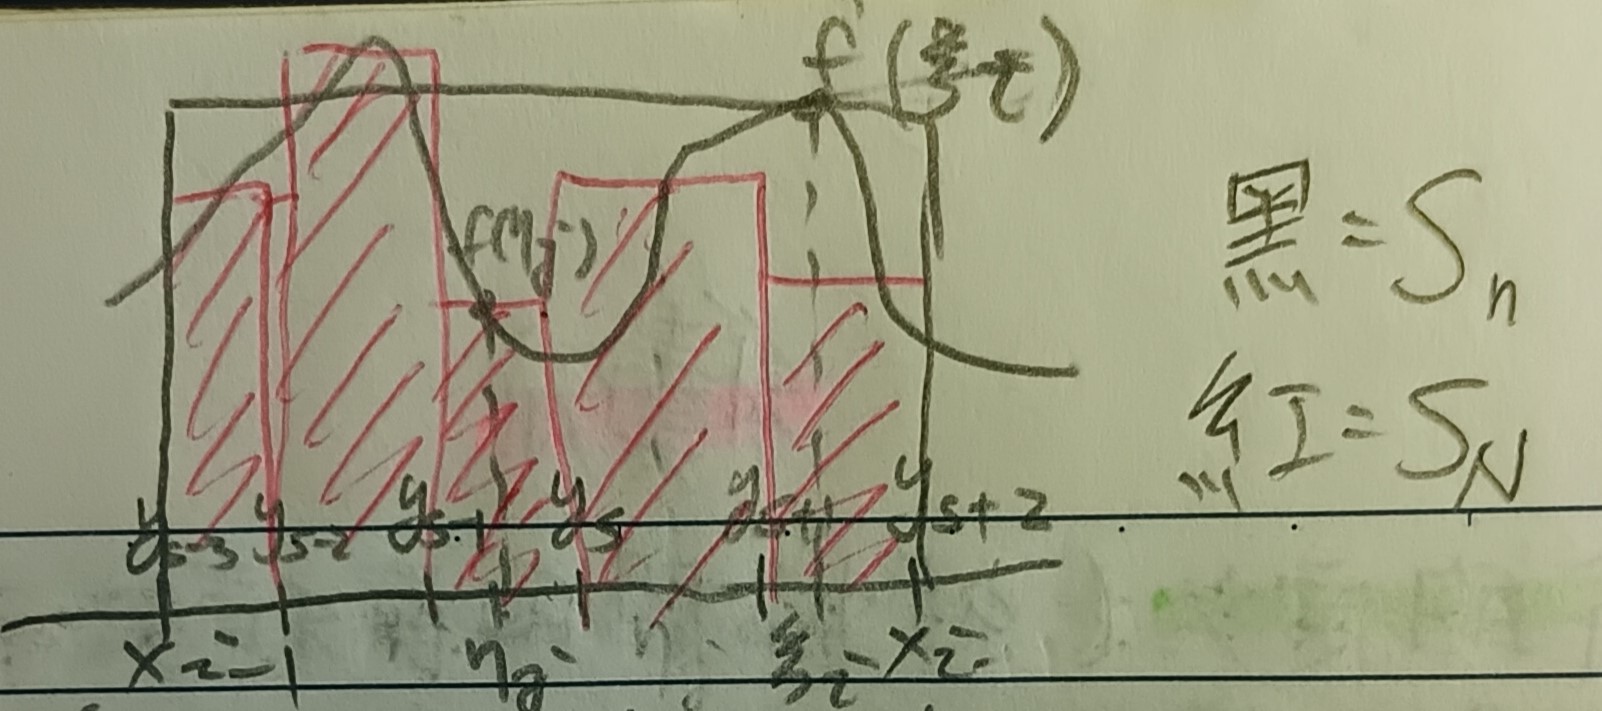 f(ξi)
f(ηj)
黒=Sn
紅=SN
ys-3 ys-2 ys-1 ys ys+1 ys+2
xi-1 ηj ξi xi